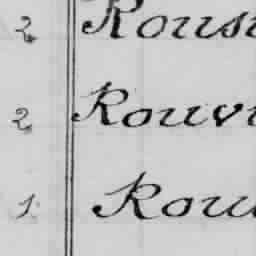 2 Rous
2 Rouv
1 Rou